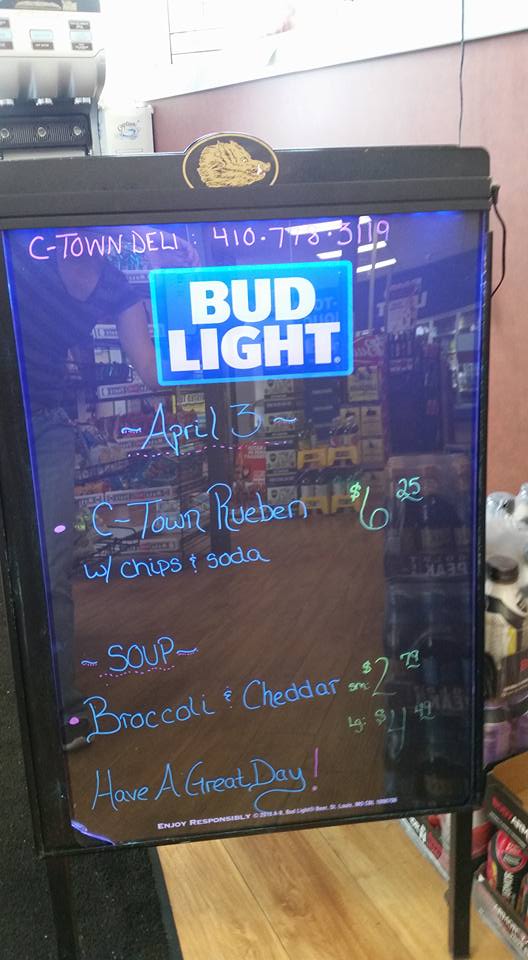 C-TOWN DELI : 410-778-3119
BUD
LIGHT®
~April 3~
• C-Town Rueben $6 25
w/ chips & soda
~SOUP~
• Broccoli & Cheddar sm: $2 79
Lg: $4 49
Have A Great Day!
ENJOY RESPONSIBLY © 2016 A-B, Bud Light® Beer, St. Louis, MO